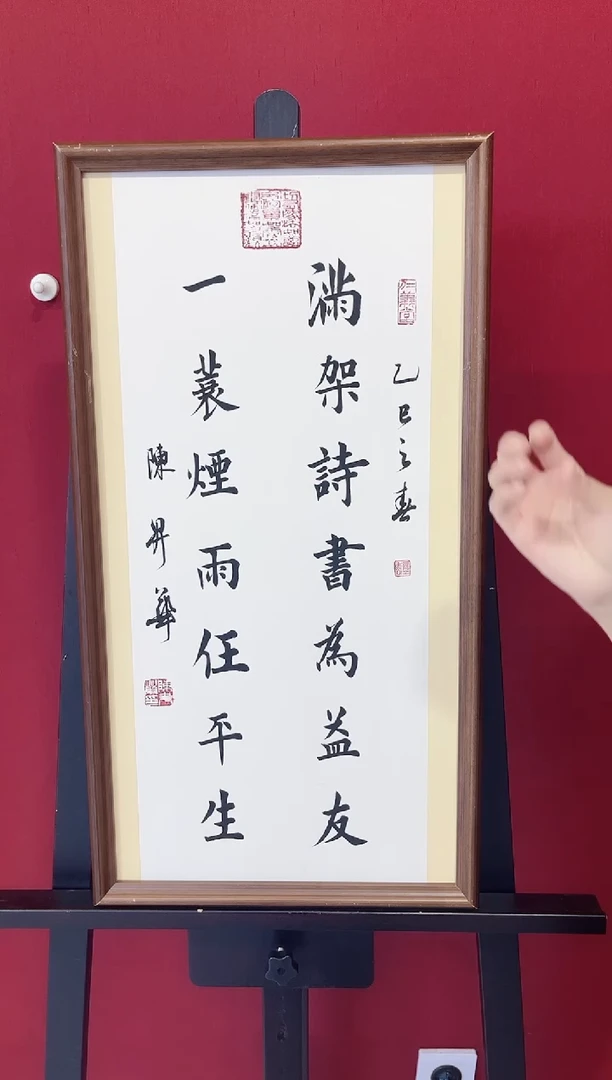 乙巳之春
滿架詩書為益友
一蓑煙雨任平生
陳昇華